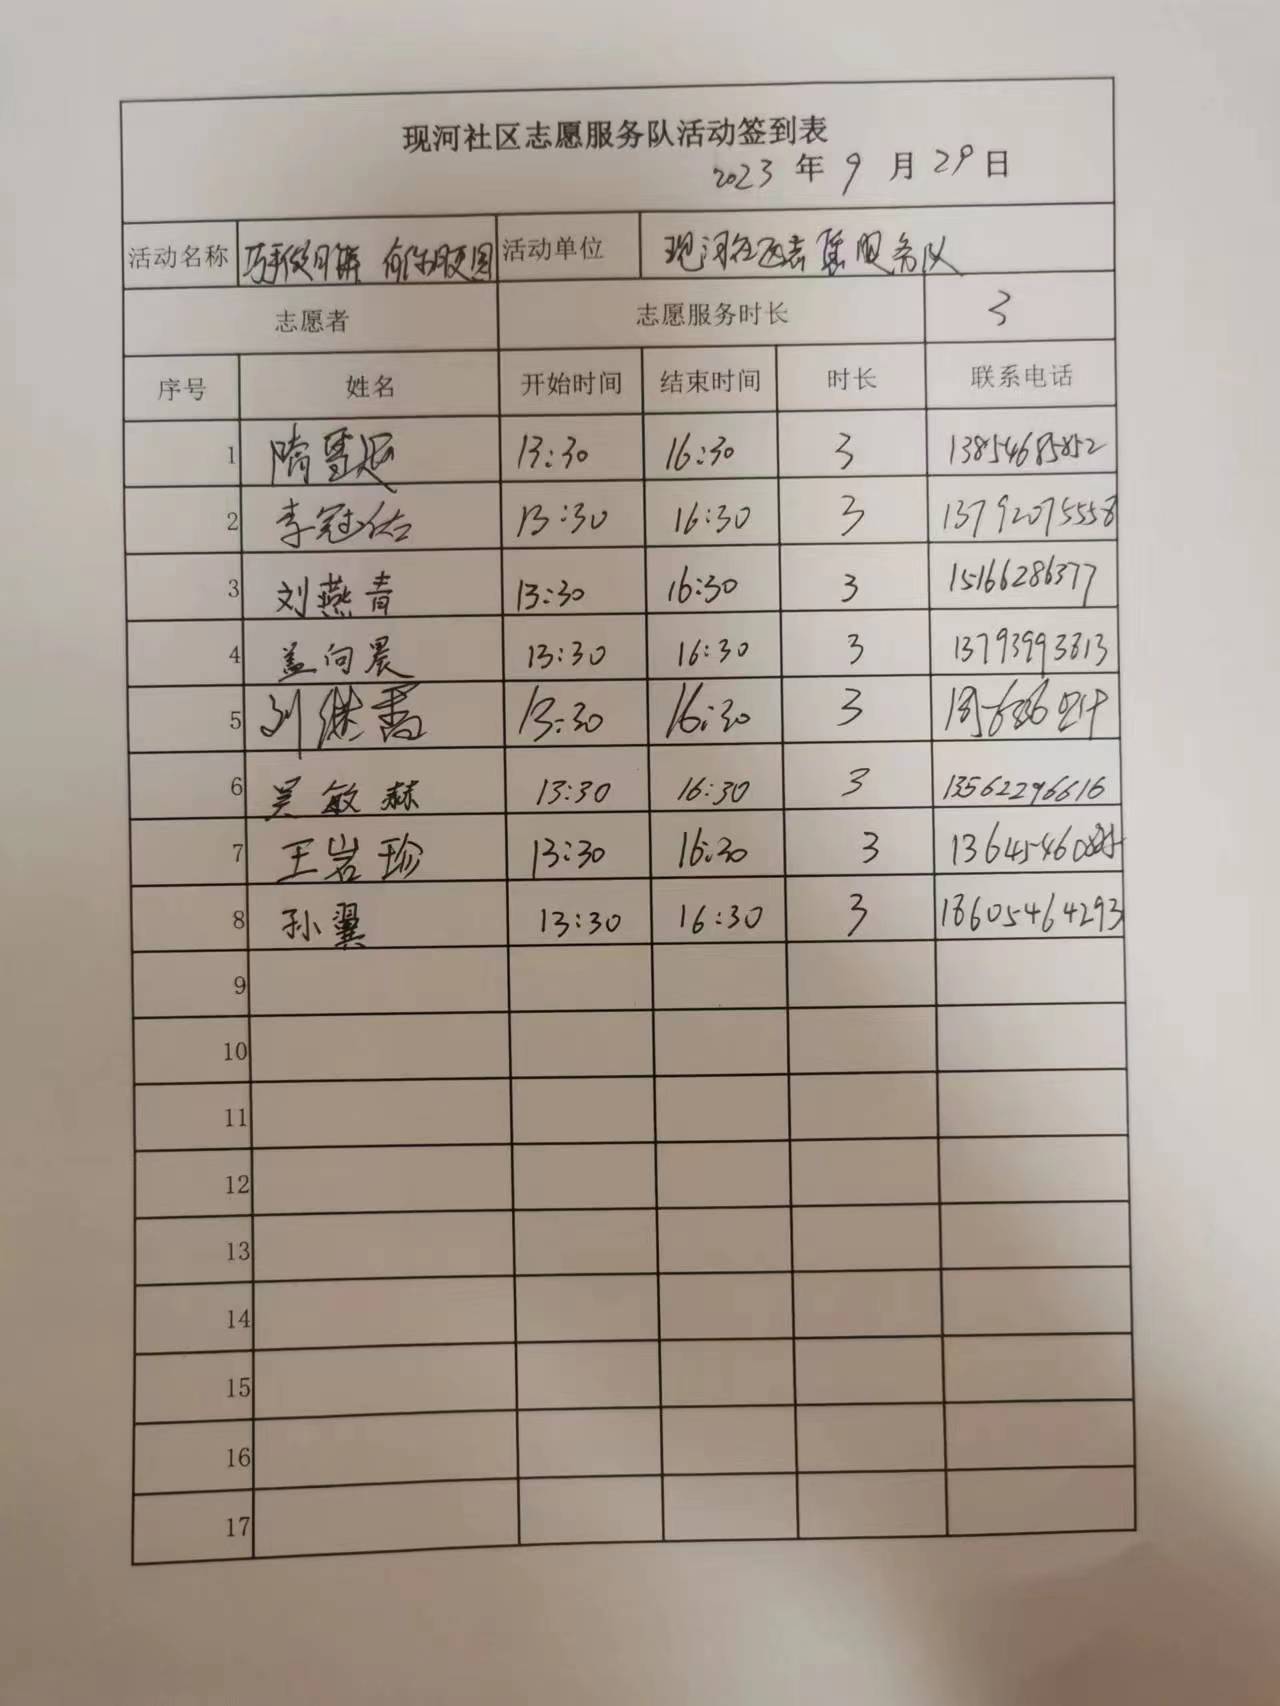 现河社区志愿服务队活动签到表
2023 年 9 月 29 日
活动名称 巧手做月饼 活动单位 现河社区志愿服务队
志愿者 志愿服务时长 3
序号 姓名 开始时间 结束时间 时长 联系电话
1 隋雪 13:30 16:30 3 13854685852
2 李冠佑 13:30 16:30 3 13792075558
3 刘燕青 13:30 16:30 3 15166286377
4 盖向晨 13:30 16:30 3 13793993813
5 刘继 13:30 16:30 3
6 吴敏赫 13:30 16:30 3 13562296616
7 王岩珍 13:30 16:30 3
8 孙翼 13:30 16:30 3 18605464293
9
10
11
12
13
14
15
16
17